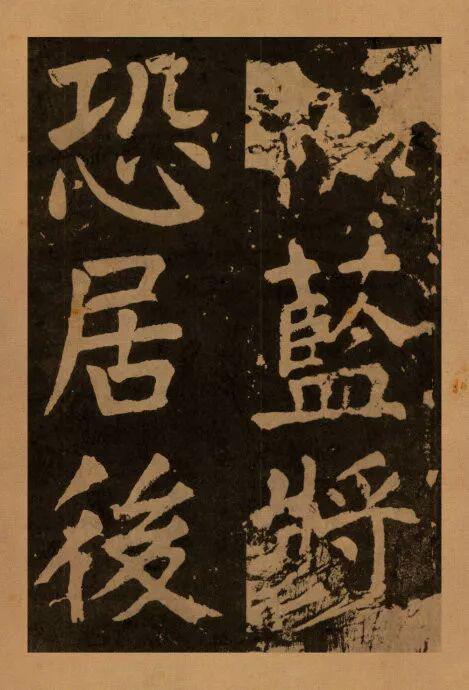 藍將
恐居後